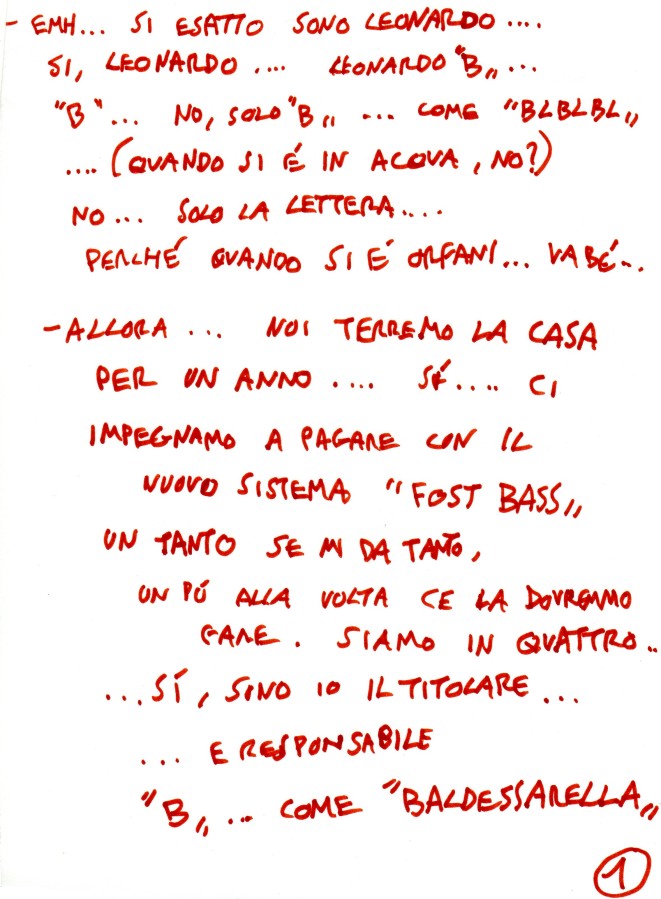 - EMH... SI ESATTO SONO LEONARDO ....
SI, LEONARDO .... LEONARDO "B„ ...
"B" ... NO, SOLO "B„ ... COME "BLBLBL„
.... (QUANDO SI É IN ACQUA, NO?)
NO ... SOLO LA LETTERA....
PERCHÉ QUANDO SI É ORFANI... VABÉ...
- ALLORA ... NOI TERREMO LA CASA
PER UN ANNO .... SÍ .... CI
IMPEGNAMO A PAGARE CON IL
NUOVO SISTEMA "FOST BASS„
UN TANTO SE MI DA TANTO,
UN PÓ ALLA VOLTA CE LA DOVREMMO
FARE. SIAMO IN QUATTRO..
...SÍ, SONO IO IL TITOLARE ...
... E RESPONSABILE
"B„ ... COME "BALDESSARELLA„
1